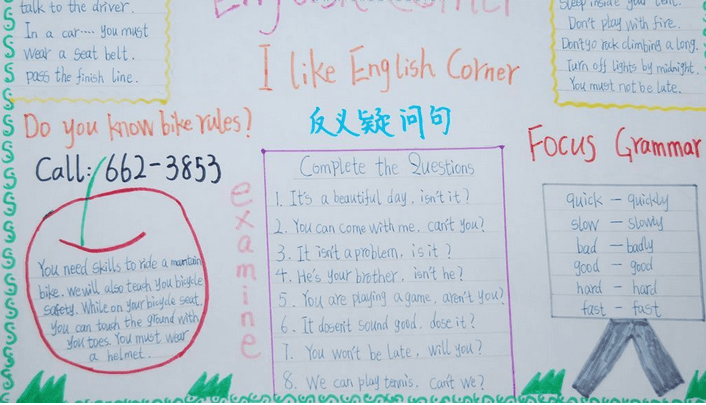 talk to the driver.
In a car.... you must
wear a seat belt.
pass the finish line.
English Corner
I like English Corner
sleep inside your tent.
Don't play with fire.
Don't go rock climbing a long.
Turn off lights by midnight.
You must not be late.
Do you know bike rules?
Call: 662-3853
You need skills to ride a mountain
bike. we will also teach you bicycle
safety. While on your bicycle seat,
you can touch the ground with
you toes. You must wear
a helmet.
examine
反义疑问句
Complete the Questions
1. It's a beautiful day, isn't it?
2. You can come with me, can't you?
3. It isn't a problem, is it?
4. He's your brother, isn't he?
5. You are playing a game, aren't you?
6. It dosen't sound good, dose it?
7. You won't be late, will you?
8. We can play tennis, can't we?
Focus Grammar
quick — quickly
slow — slowly
bad — badly
good — good
hard — hard
fast — fast